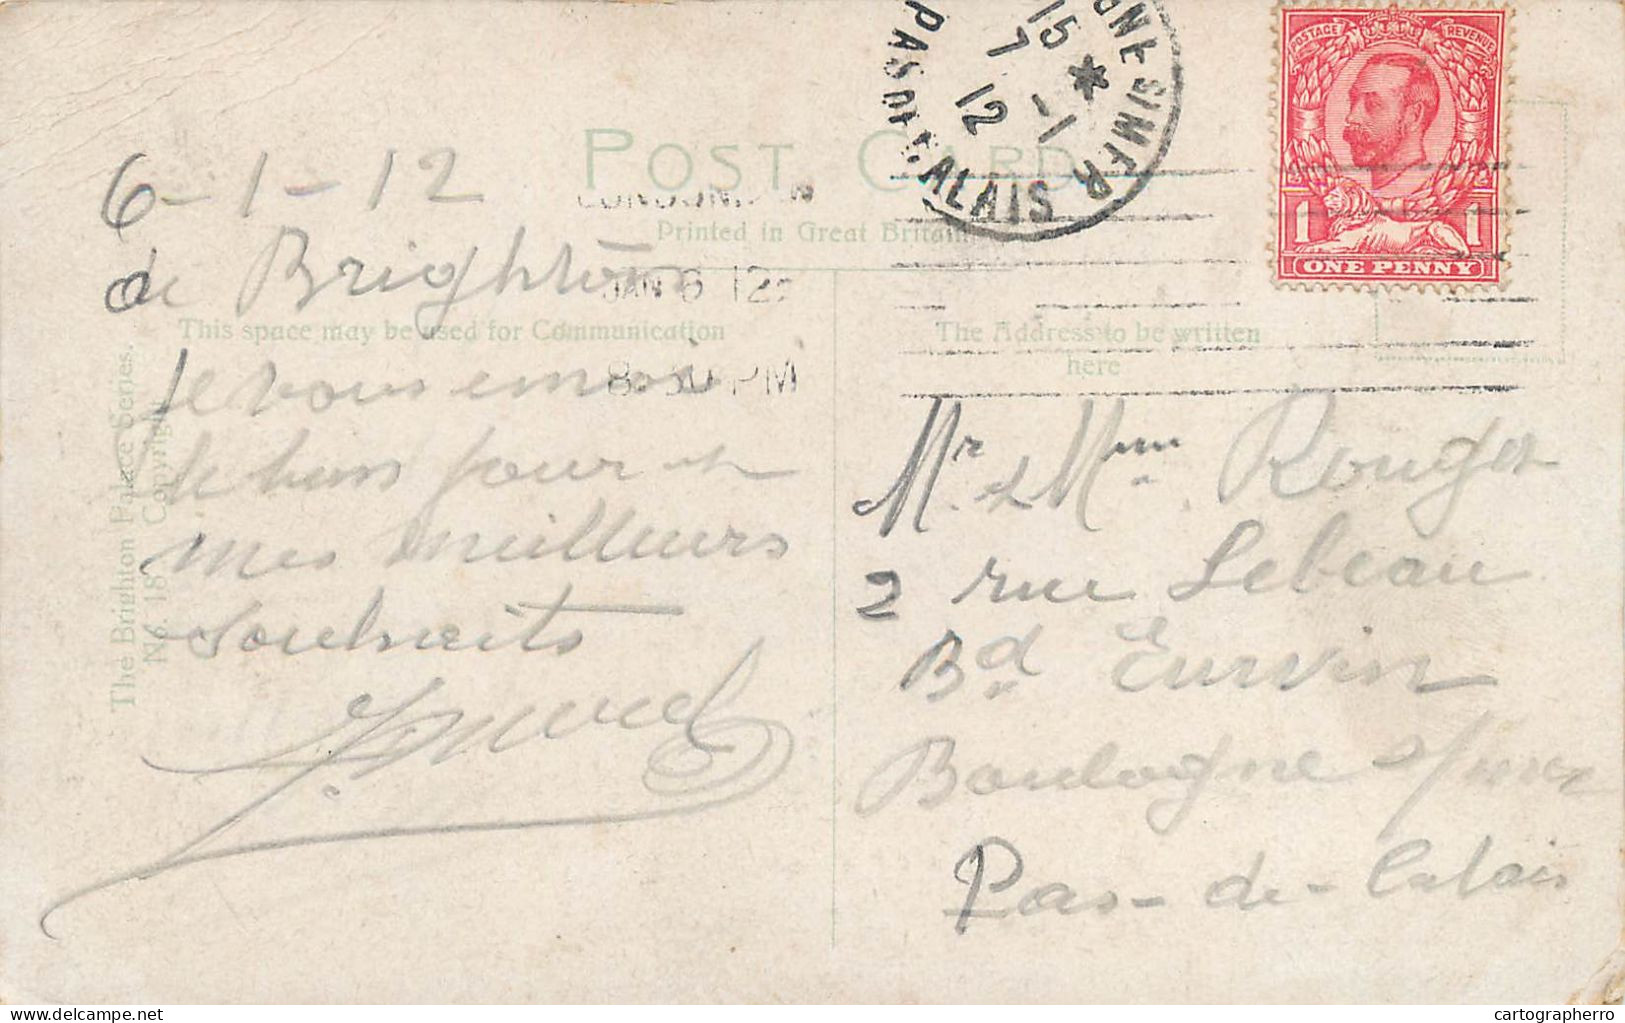 POST CARD
Printed in Great Britain
This space may be used for Communication
The Address to be written
here
The Brighton Palace Series.
No. 18 Copyright
6-1-12
de Brighton
Je vous envoie
le bon jour et
mes meilleurs
souhaits
LONDON
JAN 6 12
8.30 PM
GNE S/MER
15 *
7-1
12
PAS DE CALAIS
POSTAGE REVENUE
1 1
ONE PENNY
Mr & Mme Rouget
2 rue Lebeau
Bd Eurvin
Boulogne s/mer
Pas-de-Calais
www.delcampe.net
cartographerro